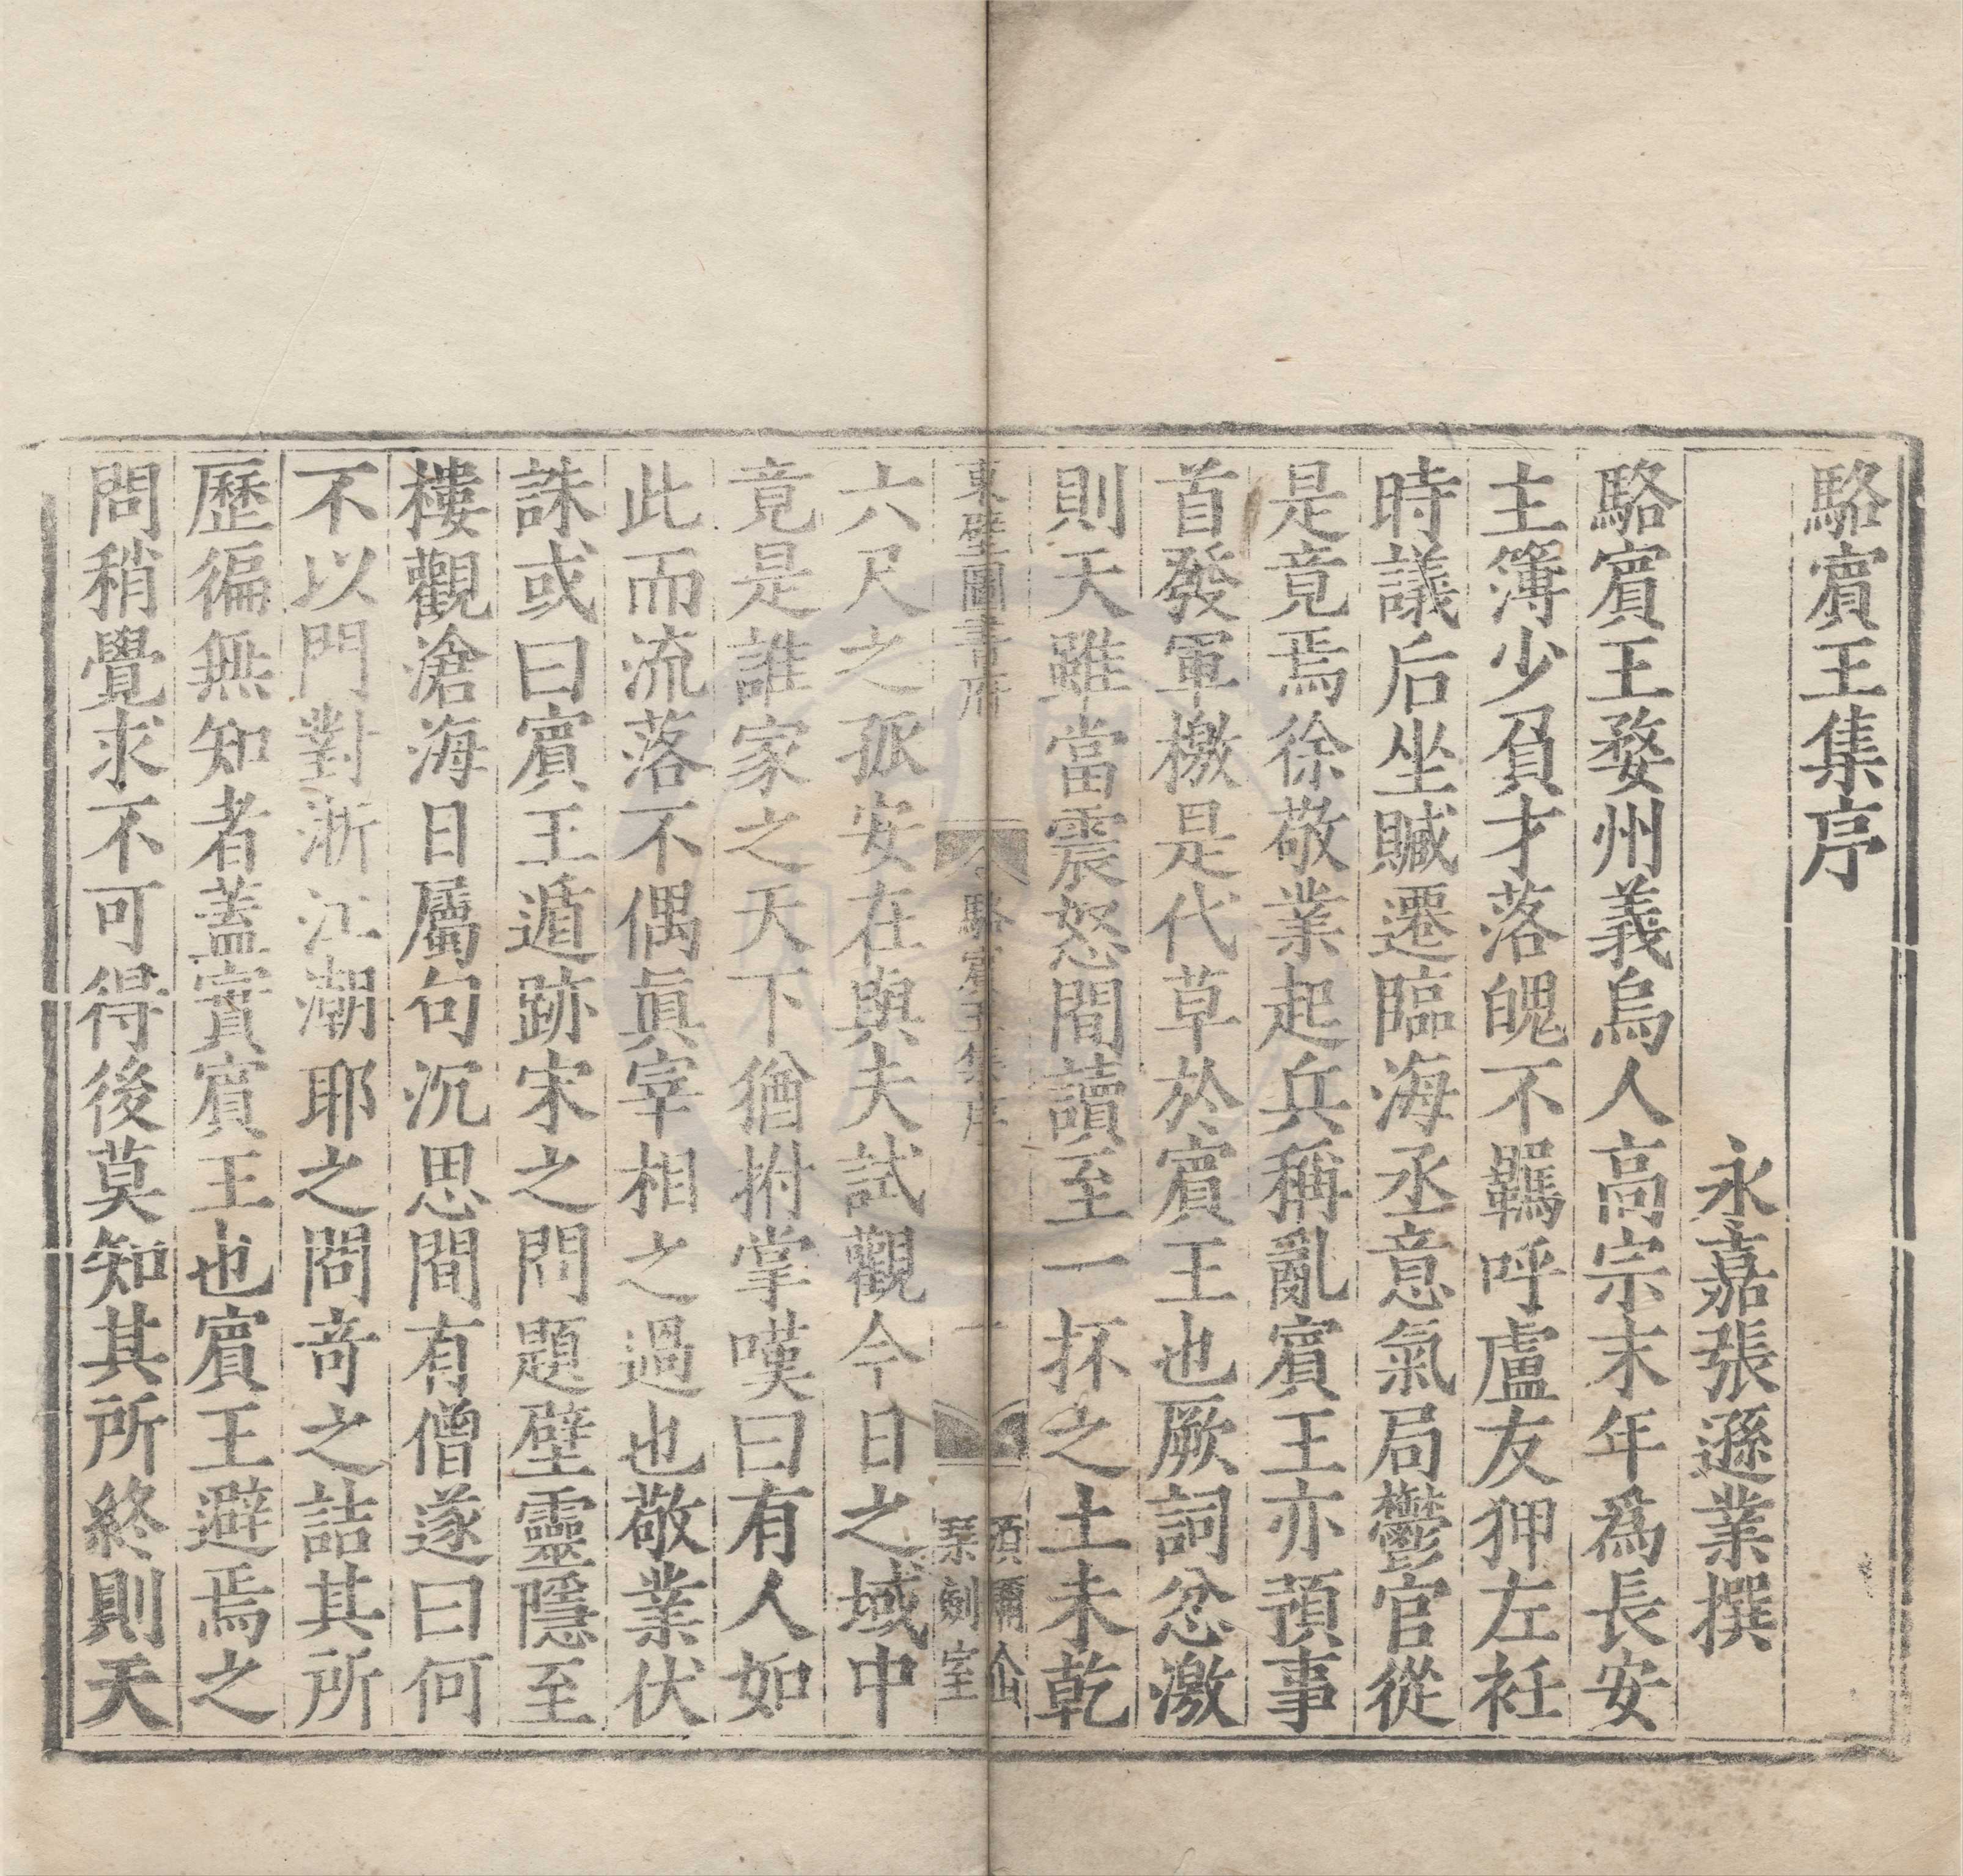 駱賓王集序
永嘉張遜業撰
駱賓王婺州義烏人高宗末年爲長安
主簿少負才落魄不羈呼盧友狎左衽
時議后坐贓遷臨海丞意氣局鬱官從
是竟焉徐敬業起兵稱亂賓王亦預事
首發軍檄是代草於賓王也厥詞忿激
則天雖當震怒間讀至一抔之土未乾
東壁圖書府
駱賓王集序
一
須彌仚
琹劍室
六尺之孤安在與夫試觀今日之域中
竟是誰家之天下猶拊掌嘆曰有人如
此而流落不偶眞宰相之過也敬業伏
誅或曰賓王遁跡宋之問題壁靈隱至
樓觀滄海日屬句沉思間有僧遂曰何
不以門對浙江潮耶之問竒之詰其所
歷徧無知者蓋實賓王也賓王避焉之
問稍覺求不可得後莫知其所終則天